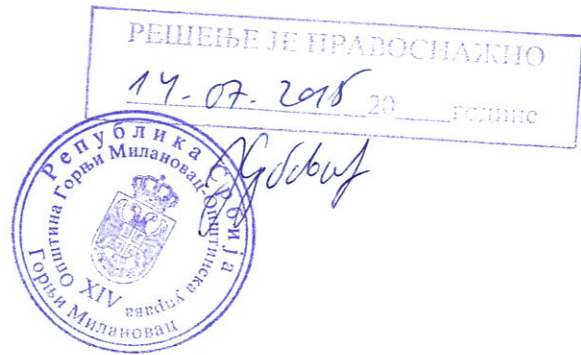 РЕШЕЊЕ ЈЕ ПРАВОСНАЖНО
14.07.2015 20___ године
Република Србија
Општина Горњи Милановац-Општинска управа
XIV
Горњи Милановац